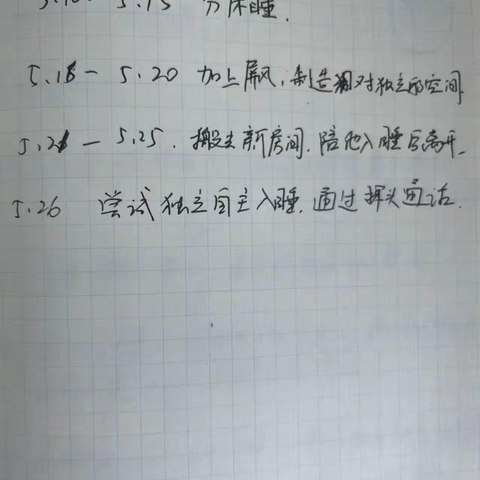 5.15 分床睡.
5.16 - 5.20 加上屏风,制造相对独立的空间.
5.21 - 5.25. 搬去新房间.陪他入睡后离开.
5.26 尝试独立自主入睡.通过探头通话.